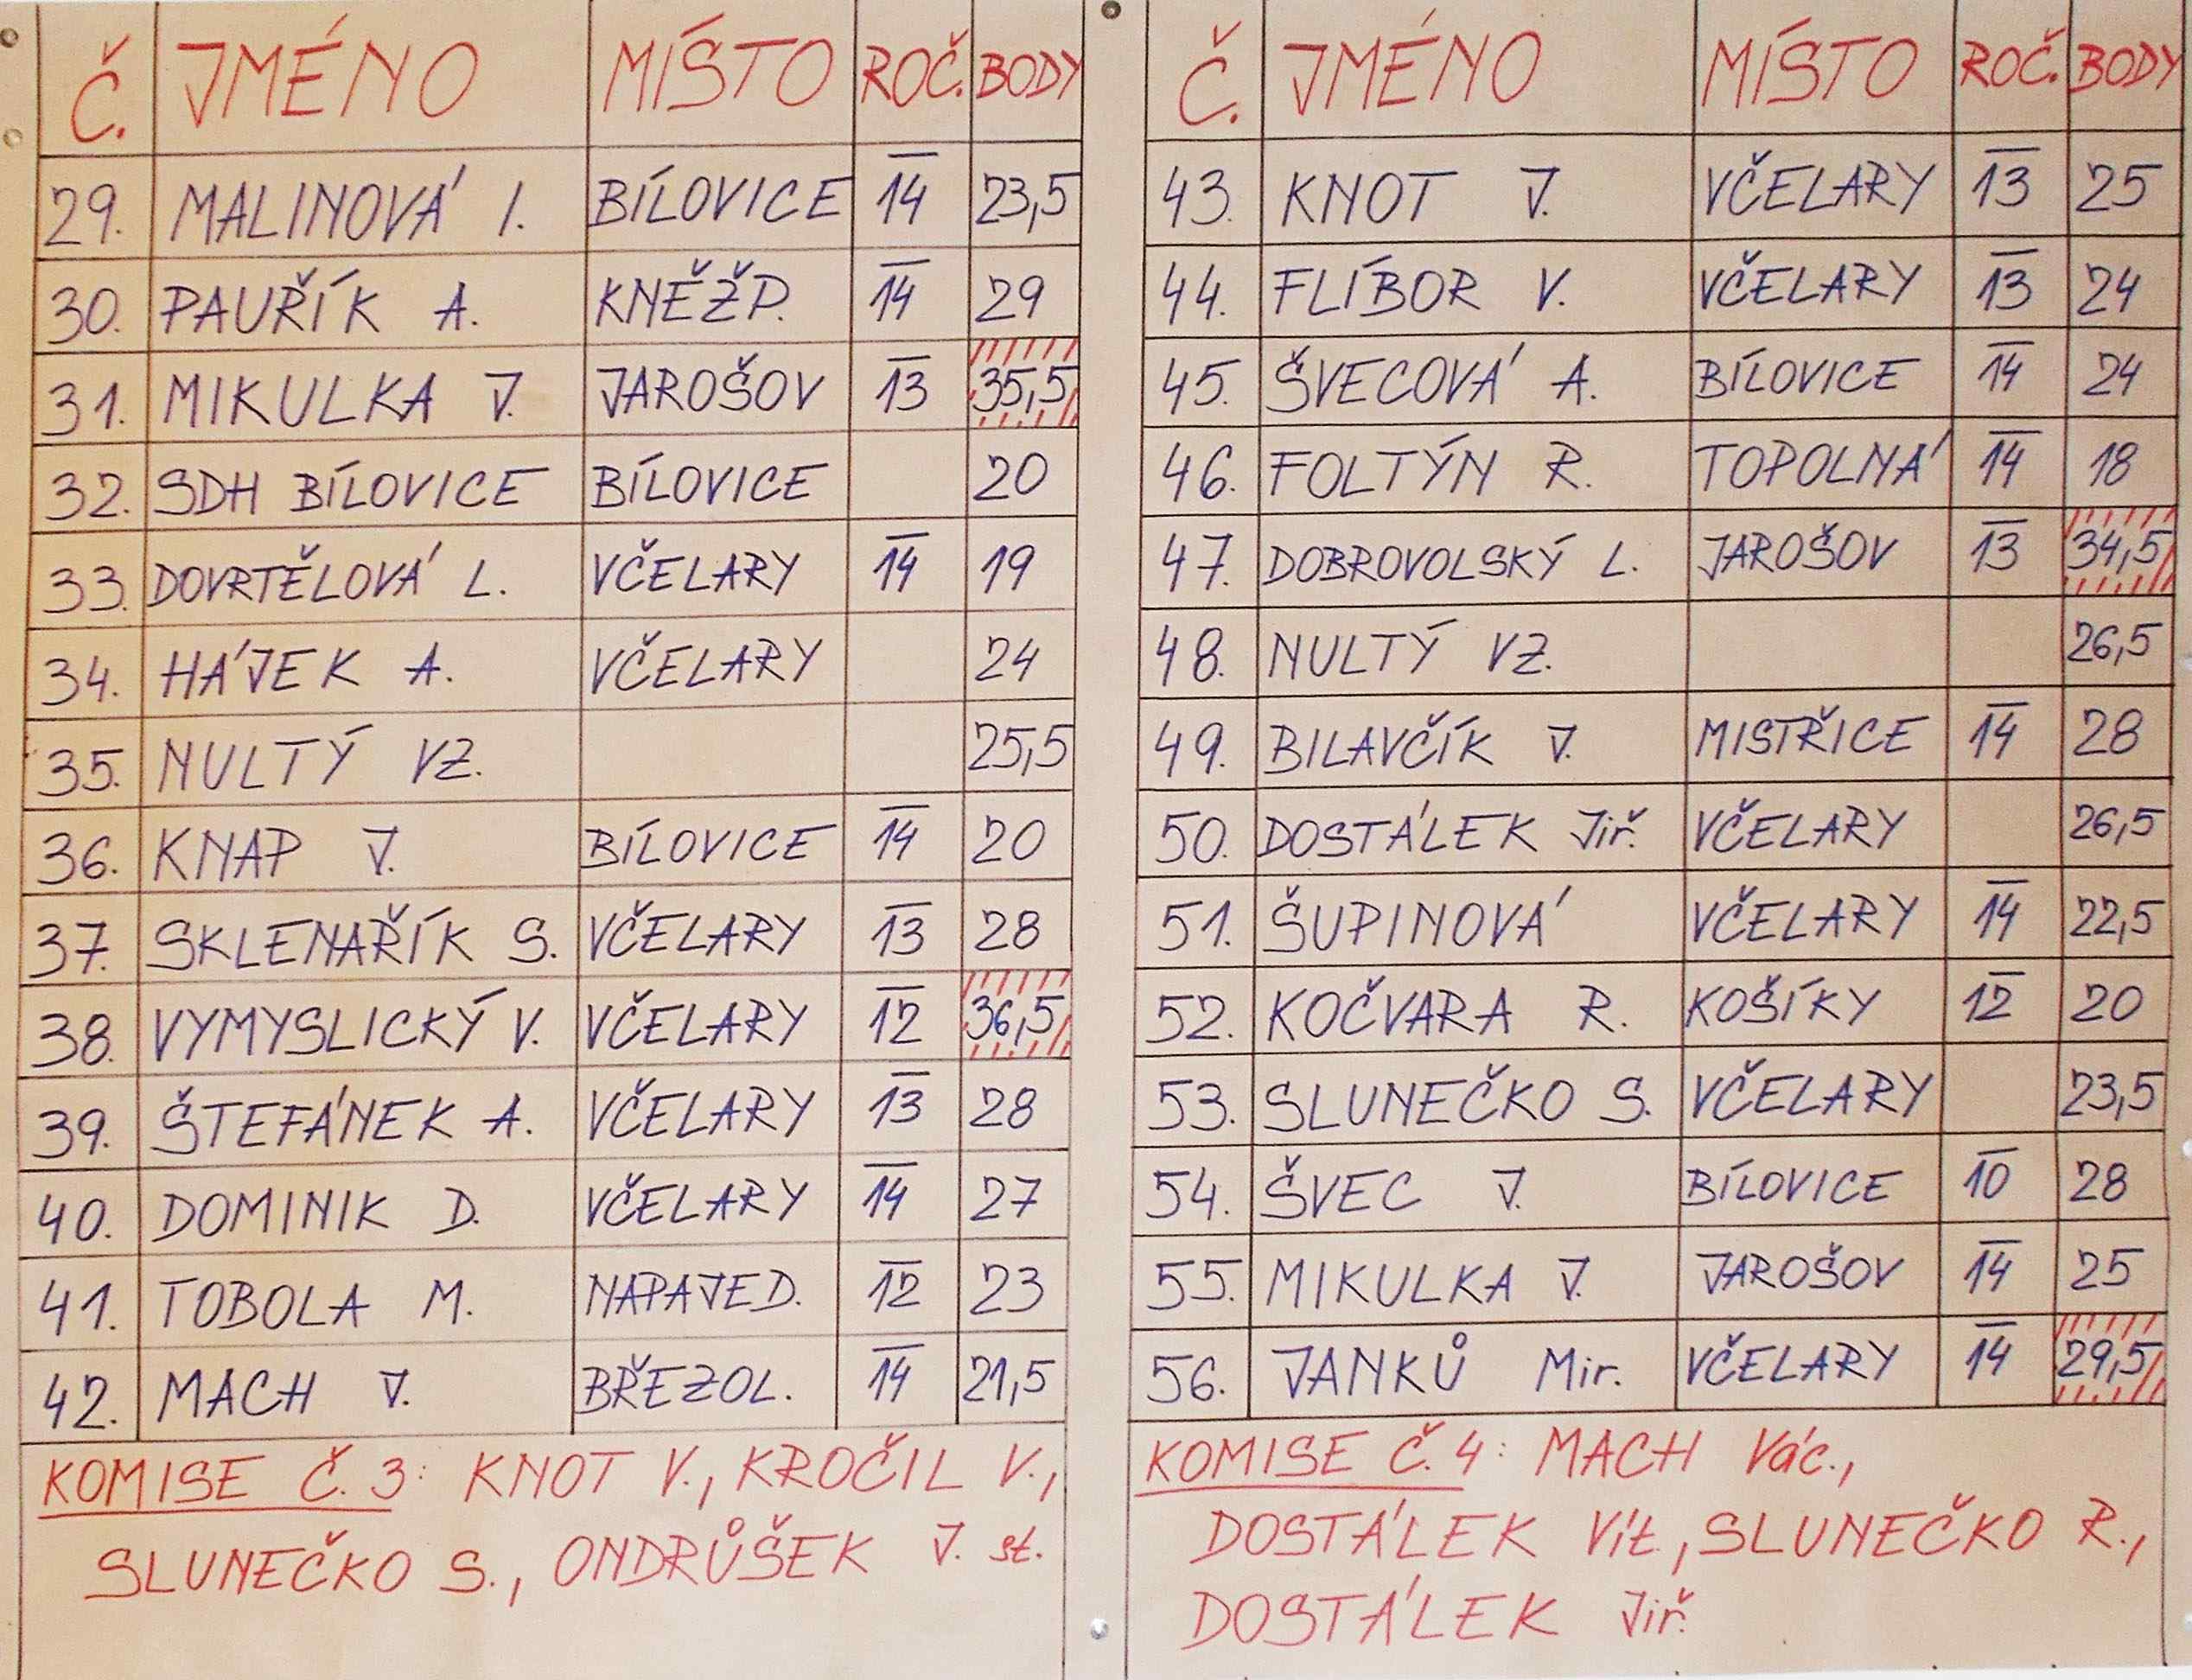 Č. JMÉNO MÍSTO ROČ. BODY
29. MALINOVÁ I. BÍLOVICE 14 23,5
30. PAUŘÍK A. KNĚŽP. 14 29
31. MIKULKA J. JAROŠOV 13 35,5
32. SDH BÍLOVICE BÍLOVICE 20
33. DOVRTĚLOVÁ L. VČELARY 14 19
34. HÁJEK A. VČELARY 24
35. NULTÝ VZ. 25,5
36. KNAP J. BÍLOVICE 14 20
37. SKLENAŘÍK S. VČELARY 13 28
38. VYMYSLICKÝ V. VČELARY 12 36,5
39. ŠTEFÁNEK A. VČELARY 13 28
40. DOMINIK D. VČELARY 14 27
41. TOBOLA M. NAPAJED. 12 23
42. MACH J. BŘEZOL. 14 21,5
KOMISE Č. 3: KNOT V., KROČIL V.,
SLUNEČKO S., ONDRŮŠEK J. st.
Č. JMÉNO MÍSTO ROČ. BODY
43. KNOT J. VČELARY 13 25
44. FLÍBOR V. VČELARY 13 24
45. ŠVECOVÁ A. BÍLOVICE 14 24
46. FOLTÝN R. TOPOLNÁ 14 18
47. DOBROVOLSKÝ L. JAROŠOV 13 34,5
48. NULTÝ VZ. 26,5
49. BILAVČÍK J. MISTŘICE 14 28
50. DOSTÁLEK Jiř. VČELARY 26,5
51. ŠUPINOVÁ VČELARY 14 22,5
52. KOČVARA R. KOŠÍKY 12 20
53. SLUNEČKO S. VČELARY 23,5
54. ŠVEC J. BÍLOVICE 10 28
55. MIKULKA J. JAROŠOV 14 25
56. JANKŮ Mir. VČELARY 14 29,5
KOMISE Č. 4: MACH Vác.,
DOSTÁLEK Vít., SLUNEČKO R.,
DOSTÁLEK Jiř.